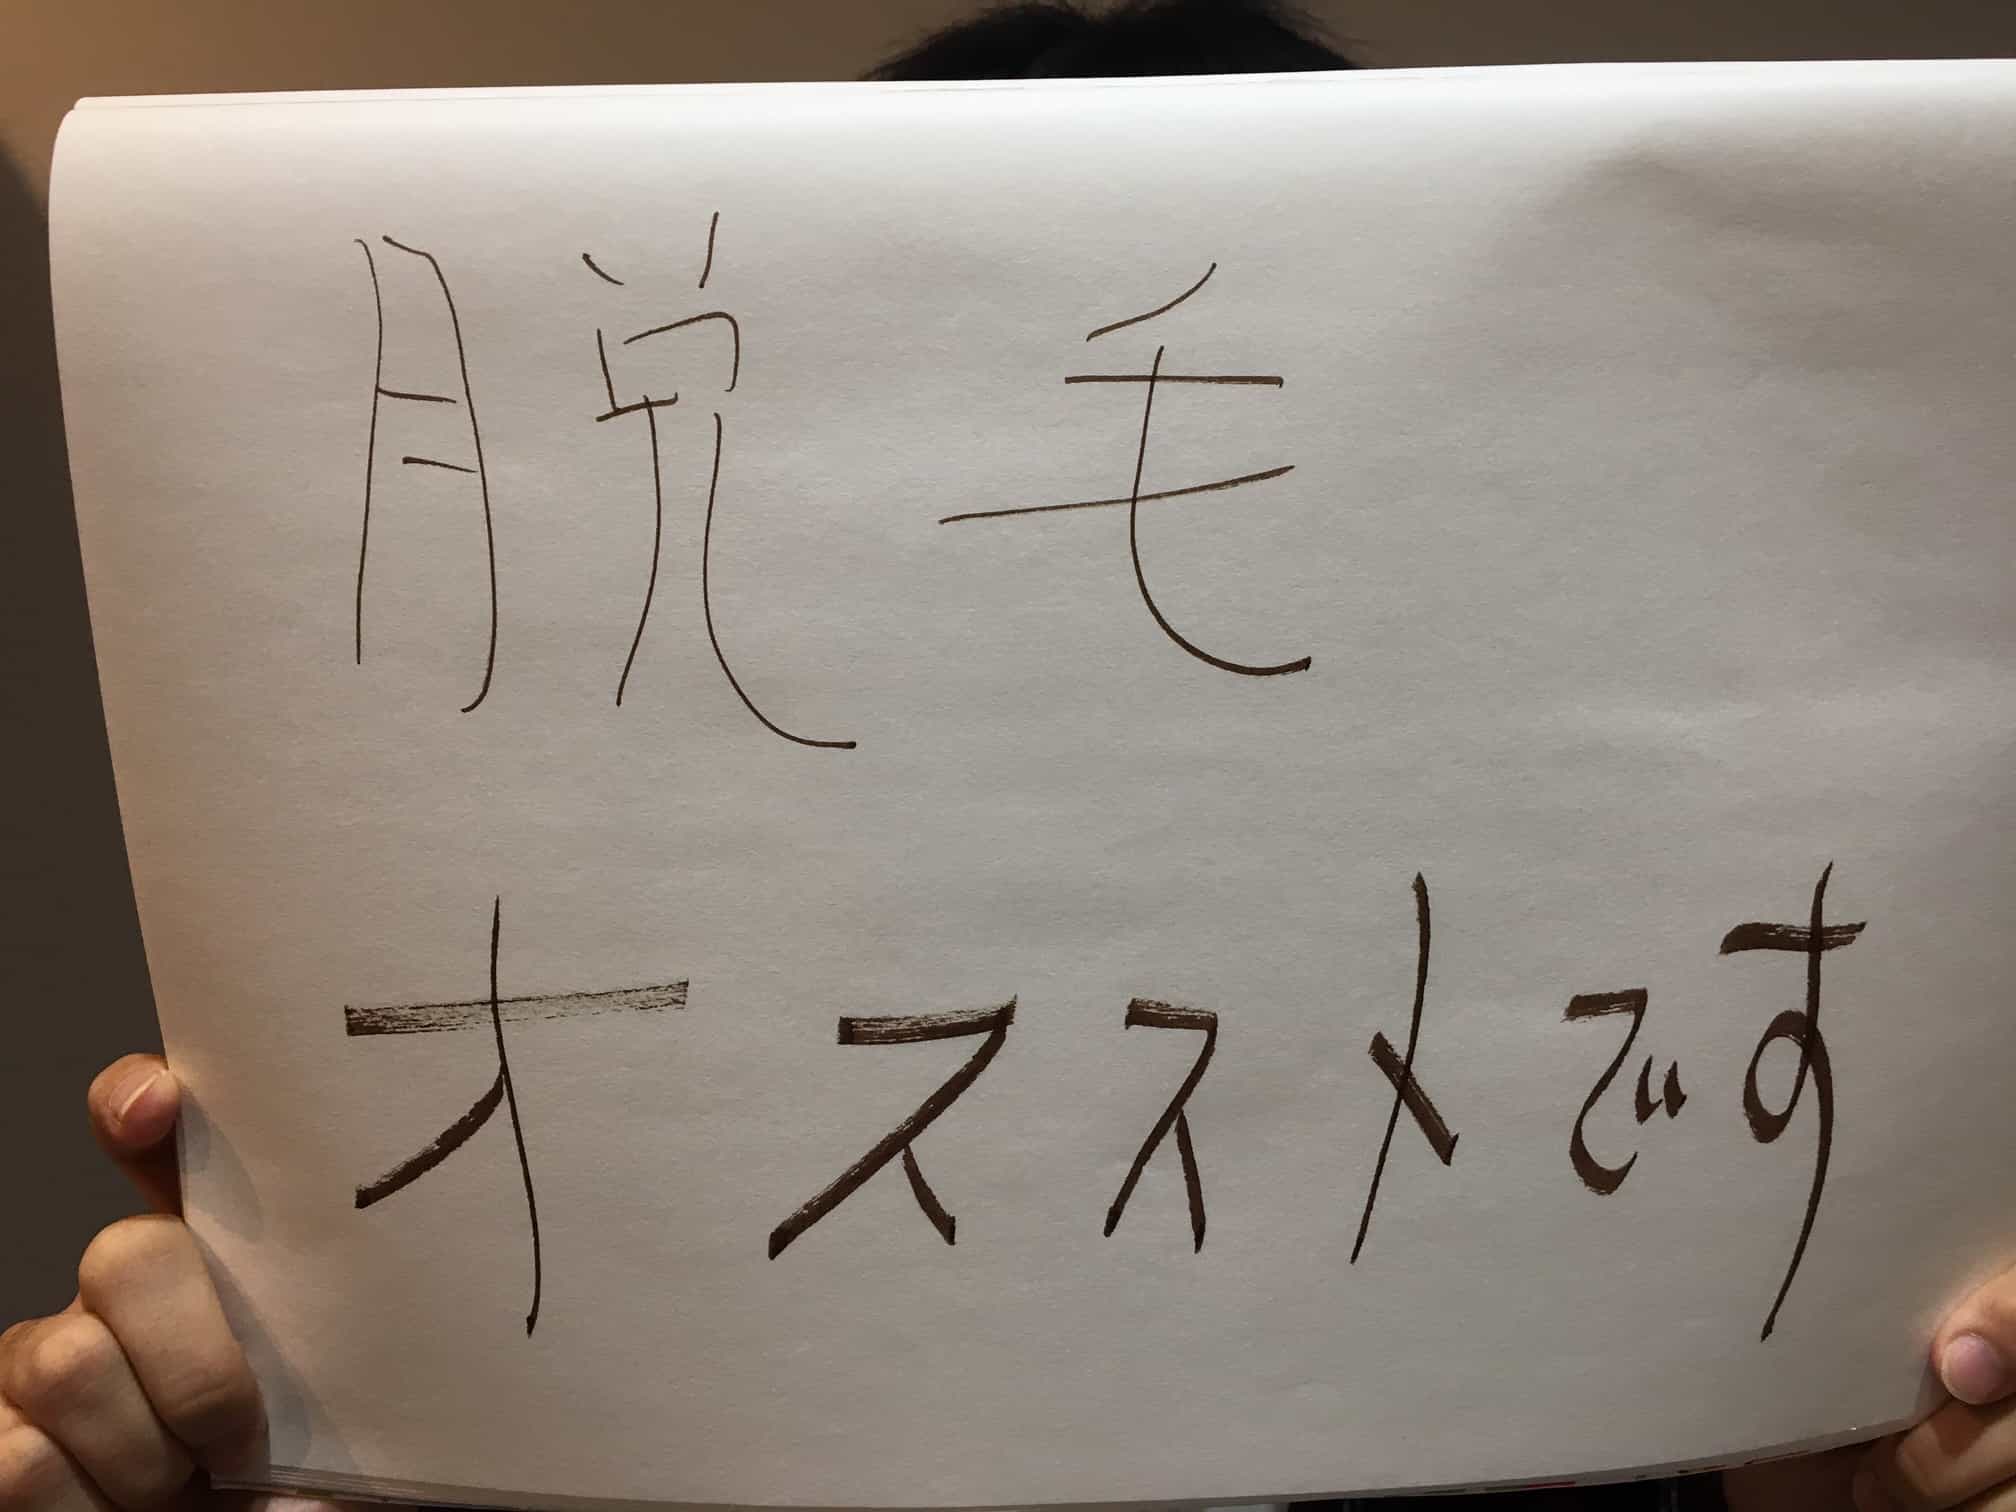 脱毛
オススメです